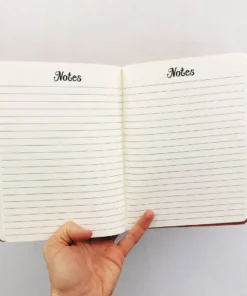 Notes
Notes